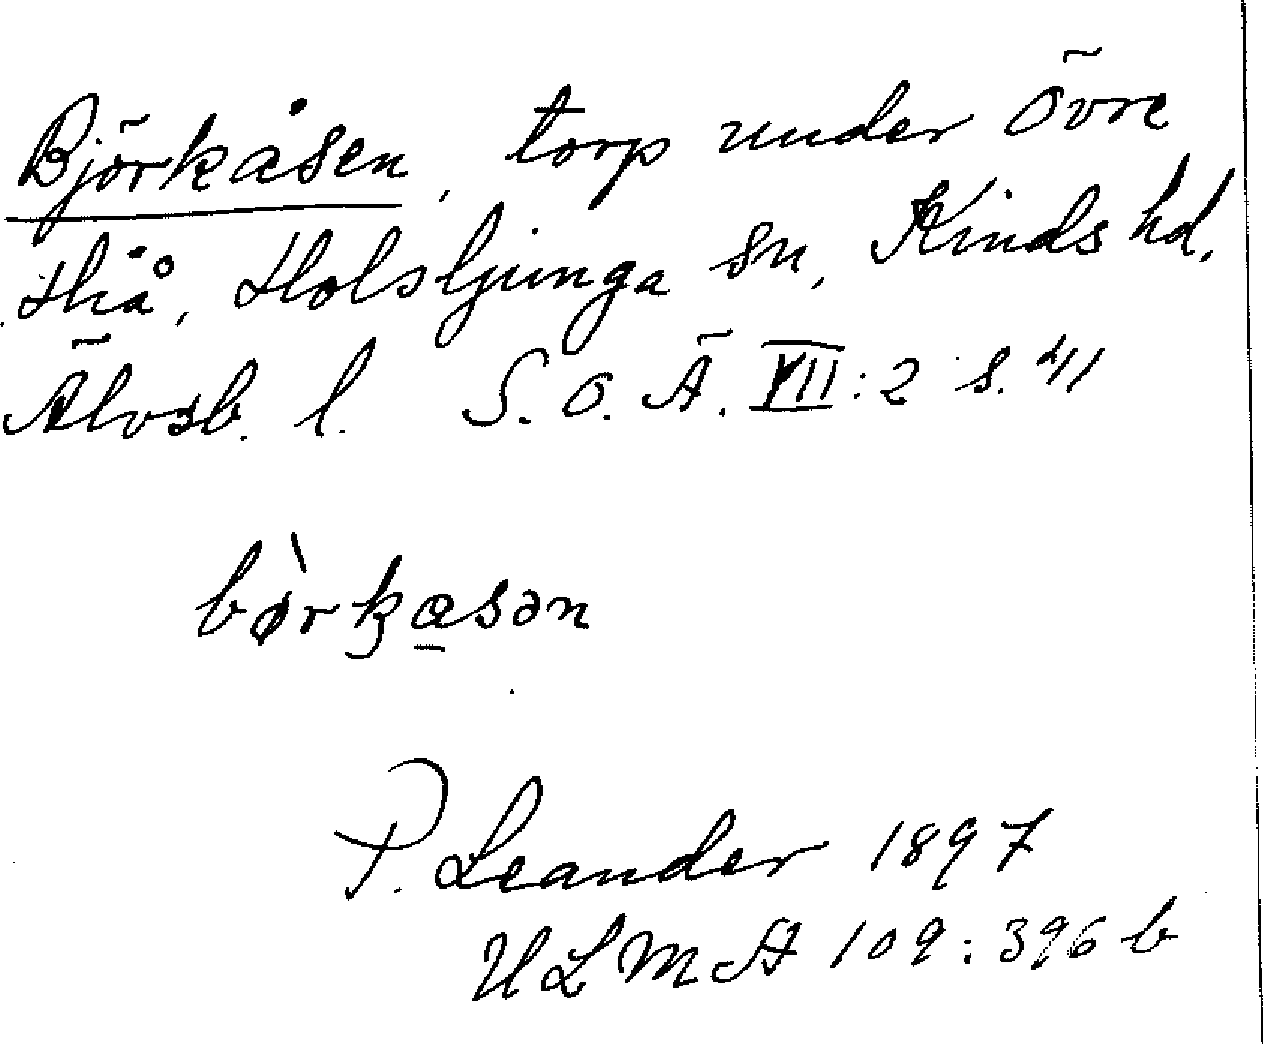 Björkåsen, torp under Övre
Hiå, Holsljunga sn, Kinds hd.
Älvsb. l. S. O. Ä. VII:2 s. 41
bø̀rkasən
P. Leander 1897
ULMA 109:396 b